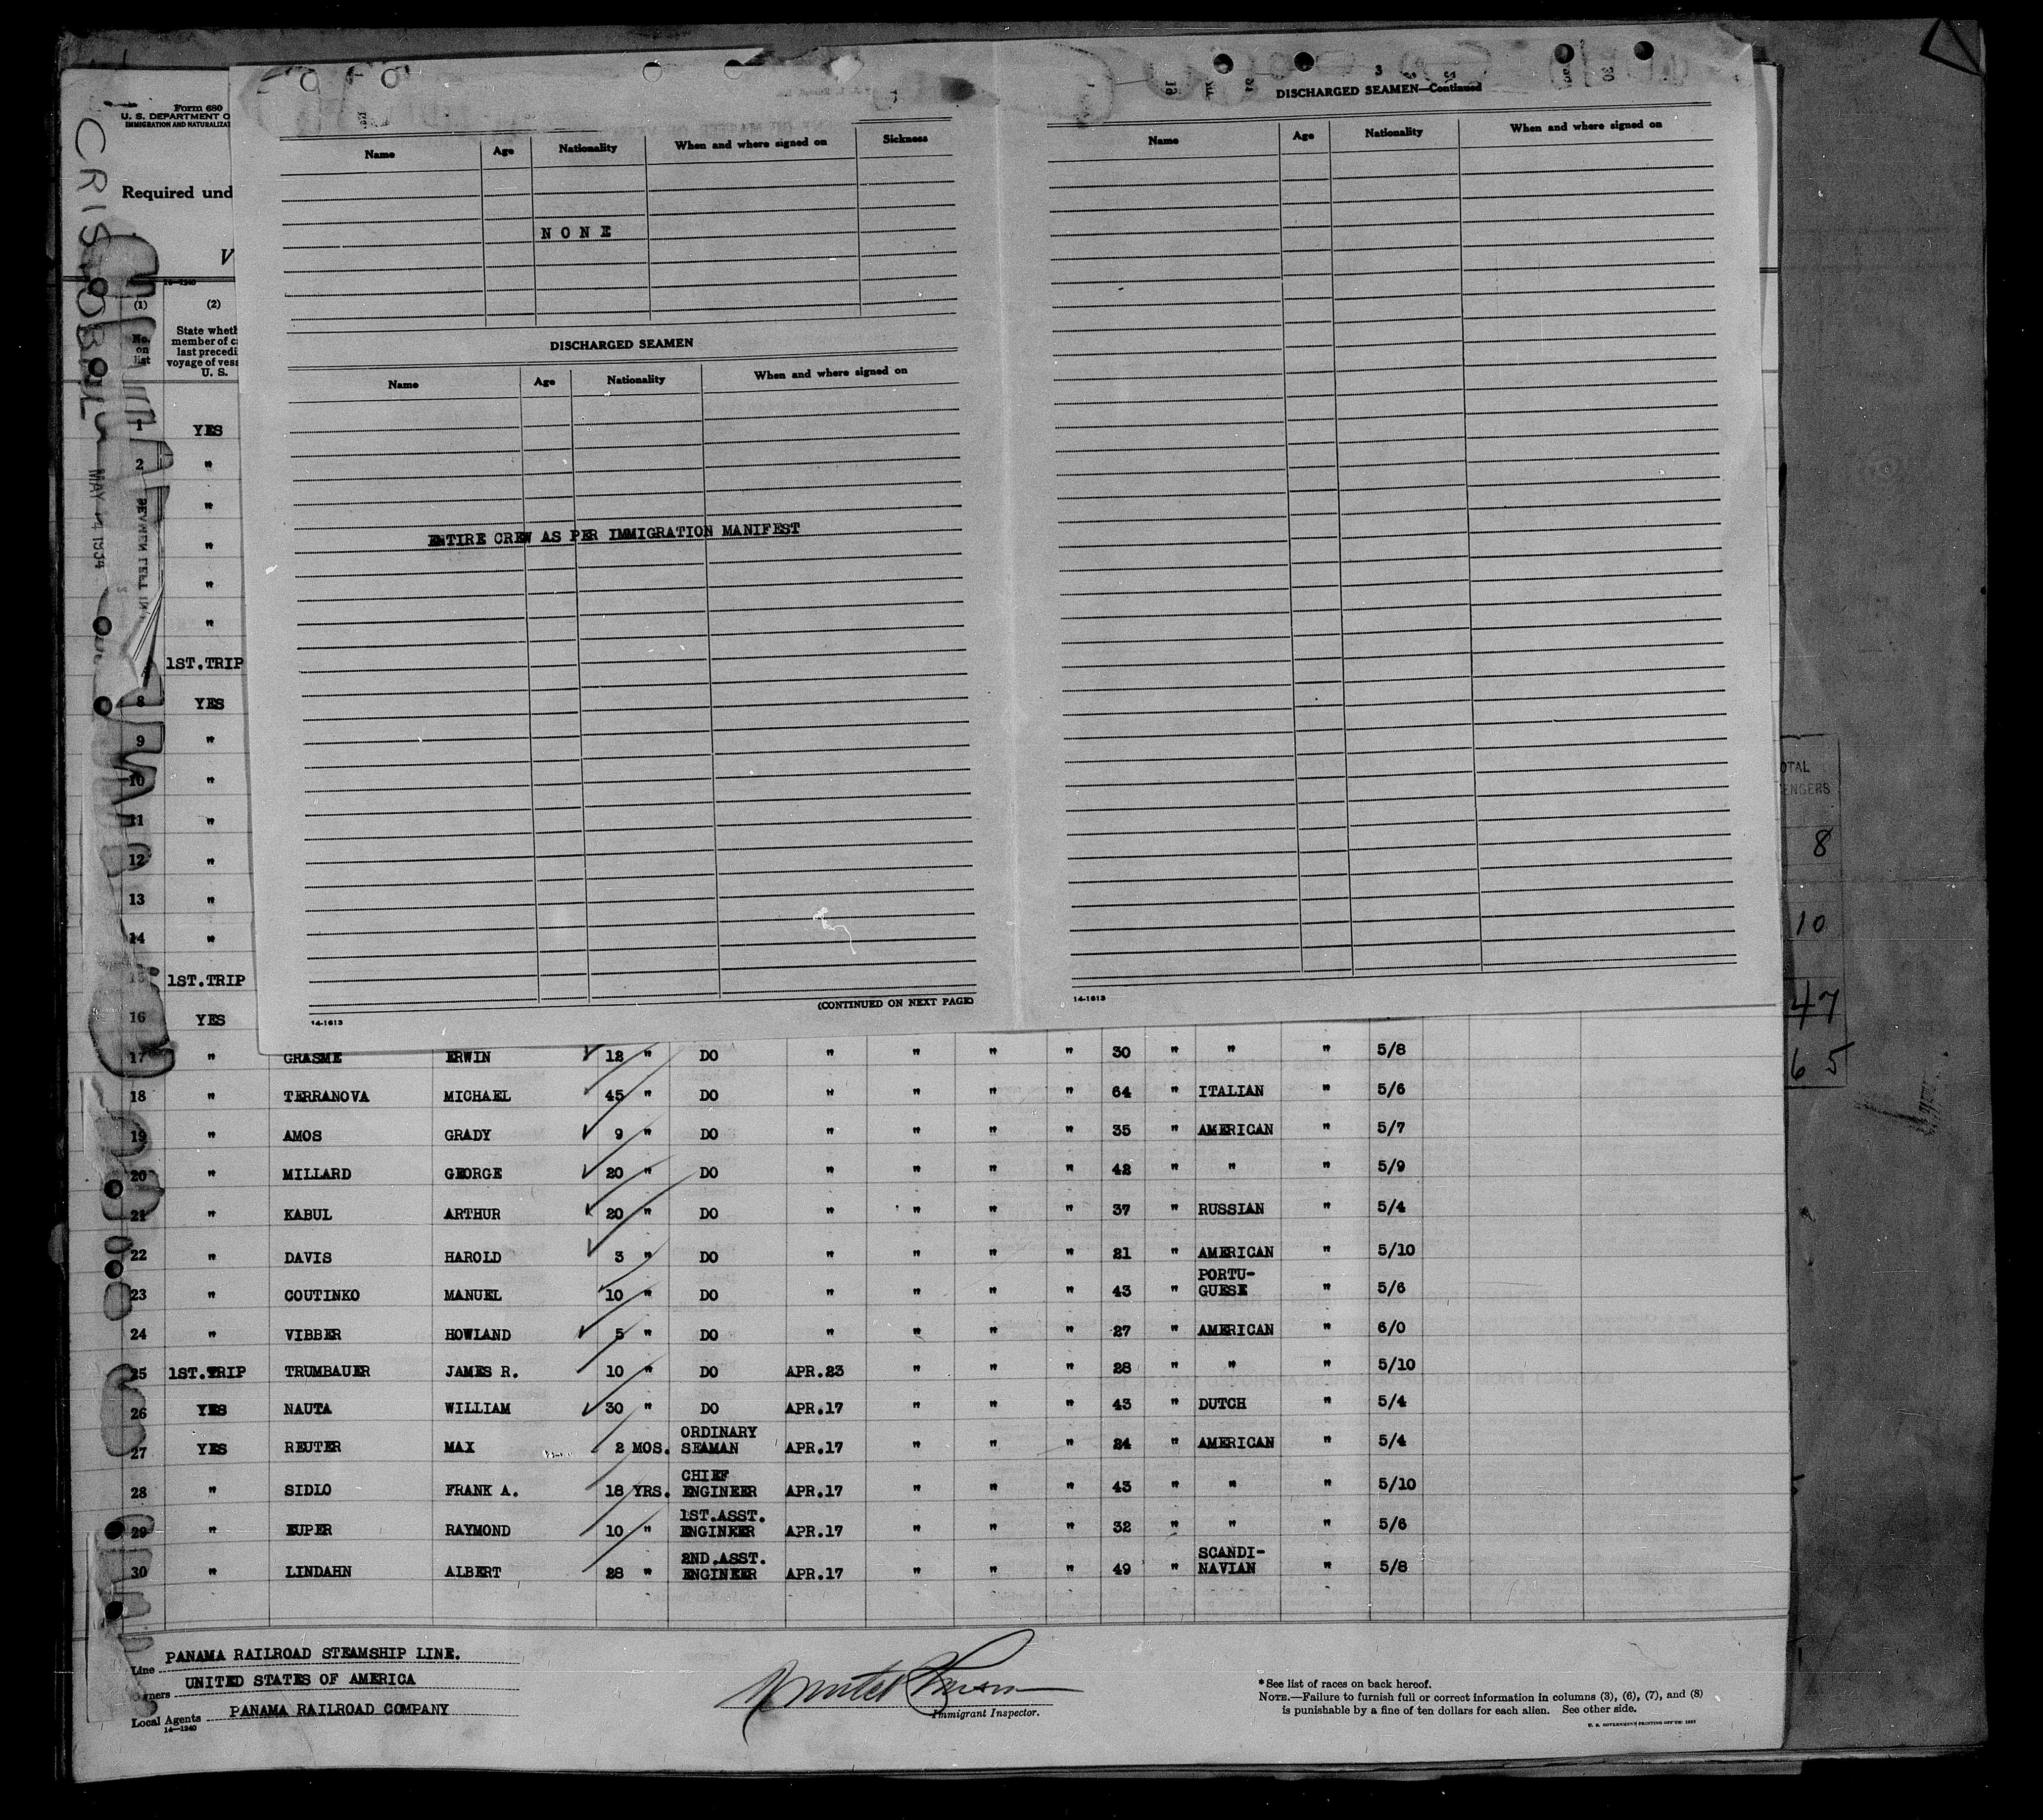 Form 680
U. S. DEPARTMENT O
IMMIGRATION AND NATURALIZAT
Required und
V
CRISTOBAL
MAY 14 1934
14—1240
(1)
No. on list
(2)
State wheth
member of c
last precedi
voyage of vess
U. S.
Name Age Nationality When and where signed on Sickness
NONE
DISCHARGED SEAMEN
Name Age Nationality When and where signed on
ENTIRE CREW AS PER IMMIGRATION MANIFEST
(CONTINUED ON NEXT PAGE)
14-1613
3
DISCHARGED SEAMEN—Continued
Name Age Nationality When and where signed on
14-1613
1 YES
2 "
"
"
"
"
1ST.TRIP
8 YES
9 "
10 "
11 "
12 "
13 "
14 "
15 1ST.TRIP
16 YES
17 " GRASME ERWIN 12 " DO " " " " 30 " " " 5/8
18 " TERRANOVA MICHAEL 45 " DO " " " " 64 " ITALIAN " 5/6
19 " AMOS GRADY 9 " DO " " " " 35 " AMERICAN " 5/7
20 " MILLARD GEORGE 20 " DO " " " " 42 " " " 5/9
21 " KABUL ARTHUR 20 " DO " " " " 37 " RUSSIAN " 5/4
22 " DAVIS HAROLD 3 " DO " " " " 21 " AMERICAN " 5/10
23 " COUTINKO MANUEL 10 " DO " " " " 43 " PORTU-
GUESE " 5/6
24 " VIBBER HOWLAND 5 " DO " " " " 27 " AMERICAN " 6/0
25 1ST.TRIP TRUMBAUER JAMES R. 10 " DO APR.23 " " " 28 " " " 5/10
26 YES NAUTA WILLIAM 30 " DO APR.17 " " " 43 " DUTCH " 5/4
27 YES REUTER MAX 2 MOS. ORDINARY
SEAMAN APR.17 " " " 24 " AMERICAN " 5/4
28 " SIDLO FRANK A. 18 YRS. CHIEF
ENGINEER APR.17 " " " 43 " " " 5/10
29 " EUPER RAYMOND 10 " 1ST.ASST.
ENGINEER APR.17 " " " 32 " " " 5/6
30 " LINDAHN ALBERT 28 " 2ND.ASST.
ENGINEER APR.17 " " " 49 " SCANDI-
NAVIAN " 5/8
OTAL
ENGERS
8
10
47
65
Line PANAMA RAILROAD STEAMSHIP LINE.
Owners UNITED STATES OF AMERICA
Local Agents PANAMA RAILROAD COMPANY
14—1240
Immigrant Inspector.
*See list of races on back hereof.
NOTE.—Failure to furnish full or correct information in columns (3), (6), (7), and (8)
is punishable by a fine of ten dollars for each alien. See other side.
U. S. GOVERNMENT PRINTING OFFICE: 1933